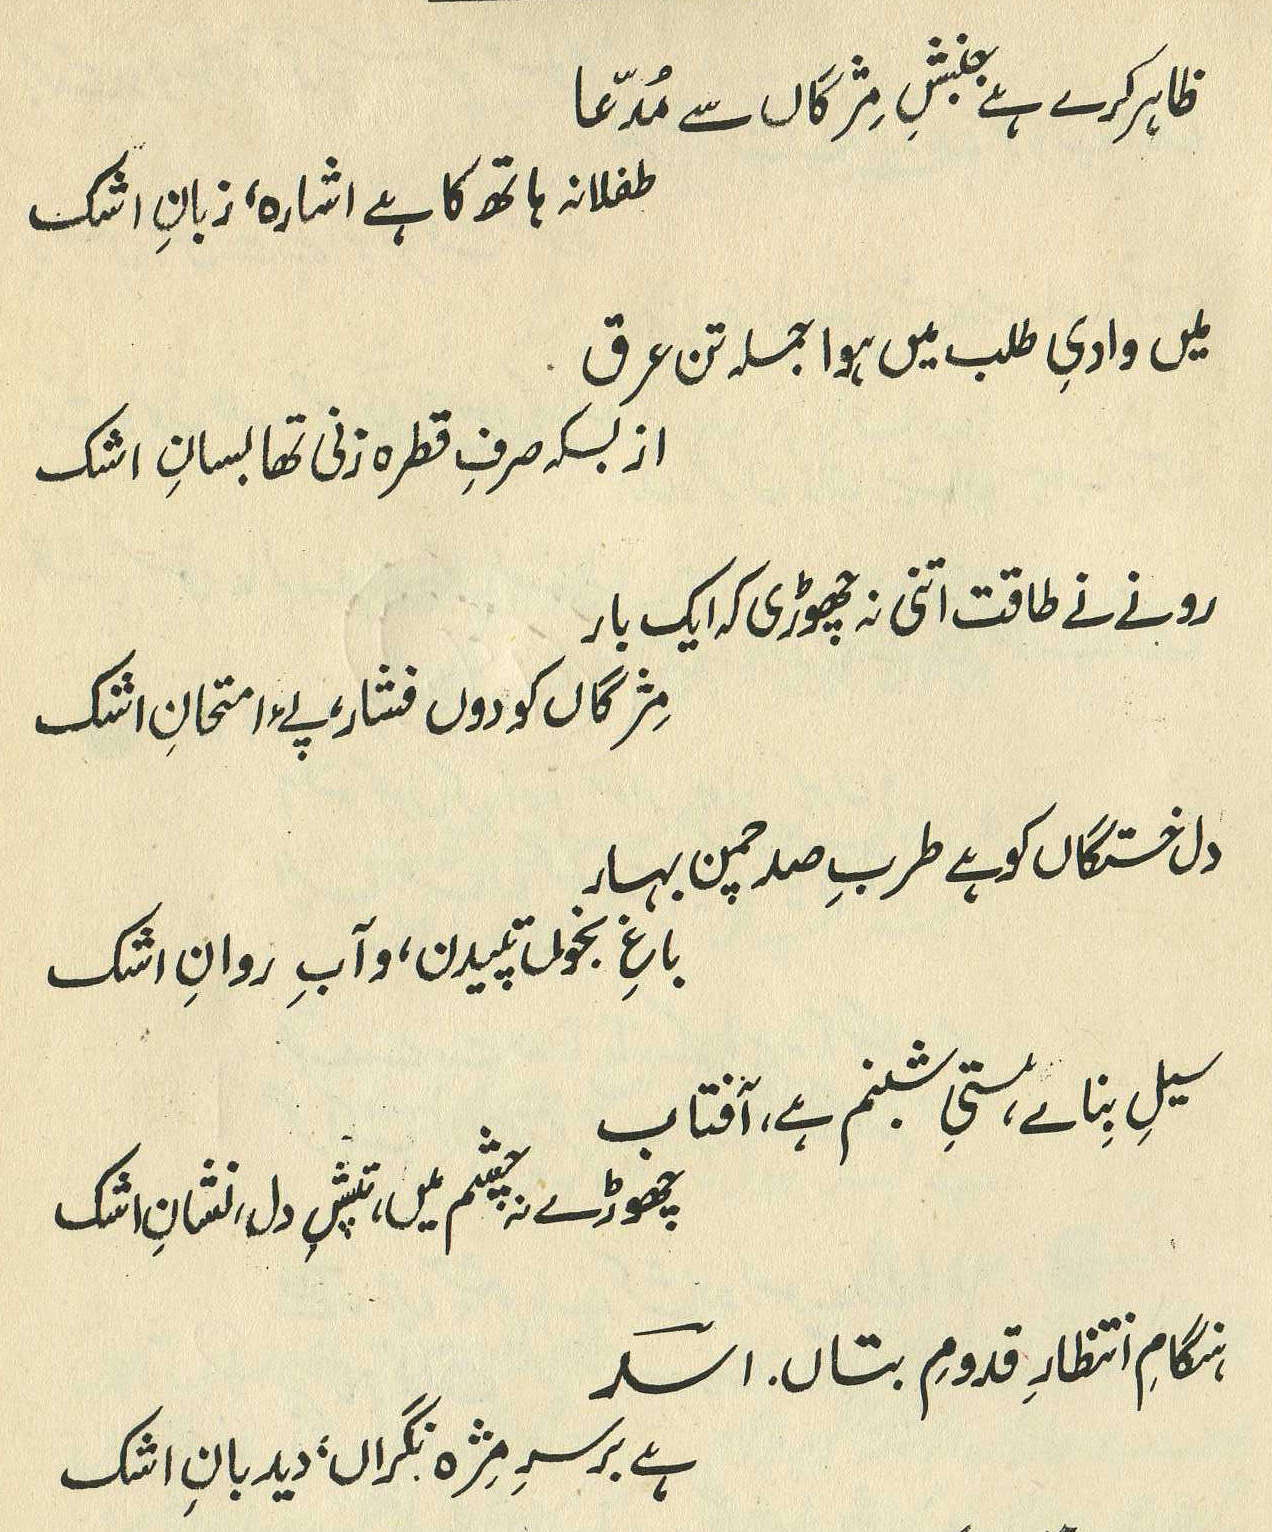 ظاہر کرے ہے جنبشِ مِژگاں سے مُدّعا
طفلانہ ہاتھ کا ہے اشارہ، زبانِ اشک
میں وادیِ طلب میں ہوا جملہ تن عرق
از بسکہ صرفِ قطرہ زنی تھا بسانِ اشک
رونے نے طاقت اتنی نہ چھوڑی کہ ایک بار
مِژگاں کو دوں فشار، پےِ امتحانِ اشک
دل خستگاں کو ہے طربِ صد چمن بہار
باغِ بخوں تپیدن، و آبِ روانِ اشک
سیلِ بِنائے، ہستیِ شبنم ہے، آفتاب
چھوڑے نہ چشم میں، تپشِ دل، نشانِ اشک
ہنگامِ انتظارِ قدومِ بتاں، اسدؔ
ہے بر سرِ مِژہ نگراں، دید بانِ اشک